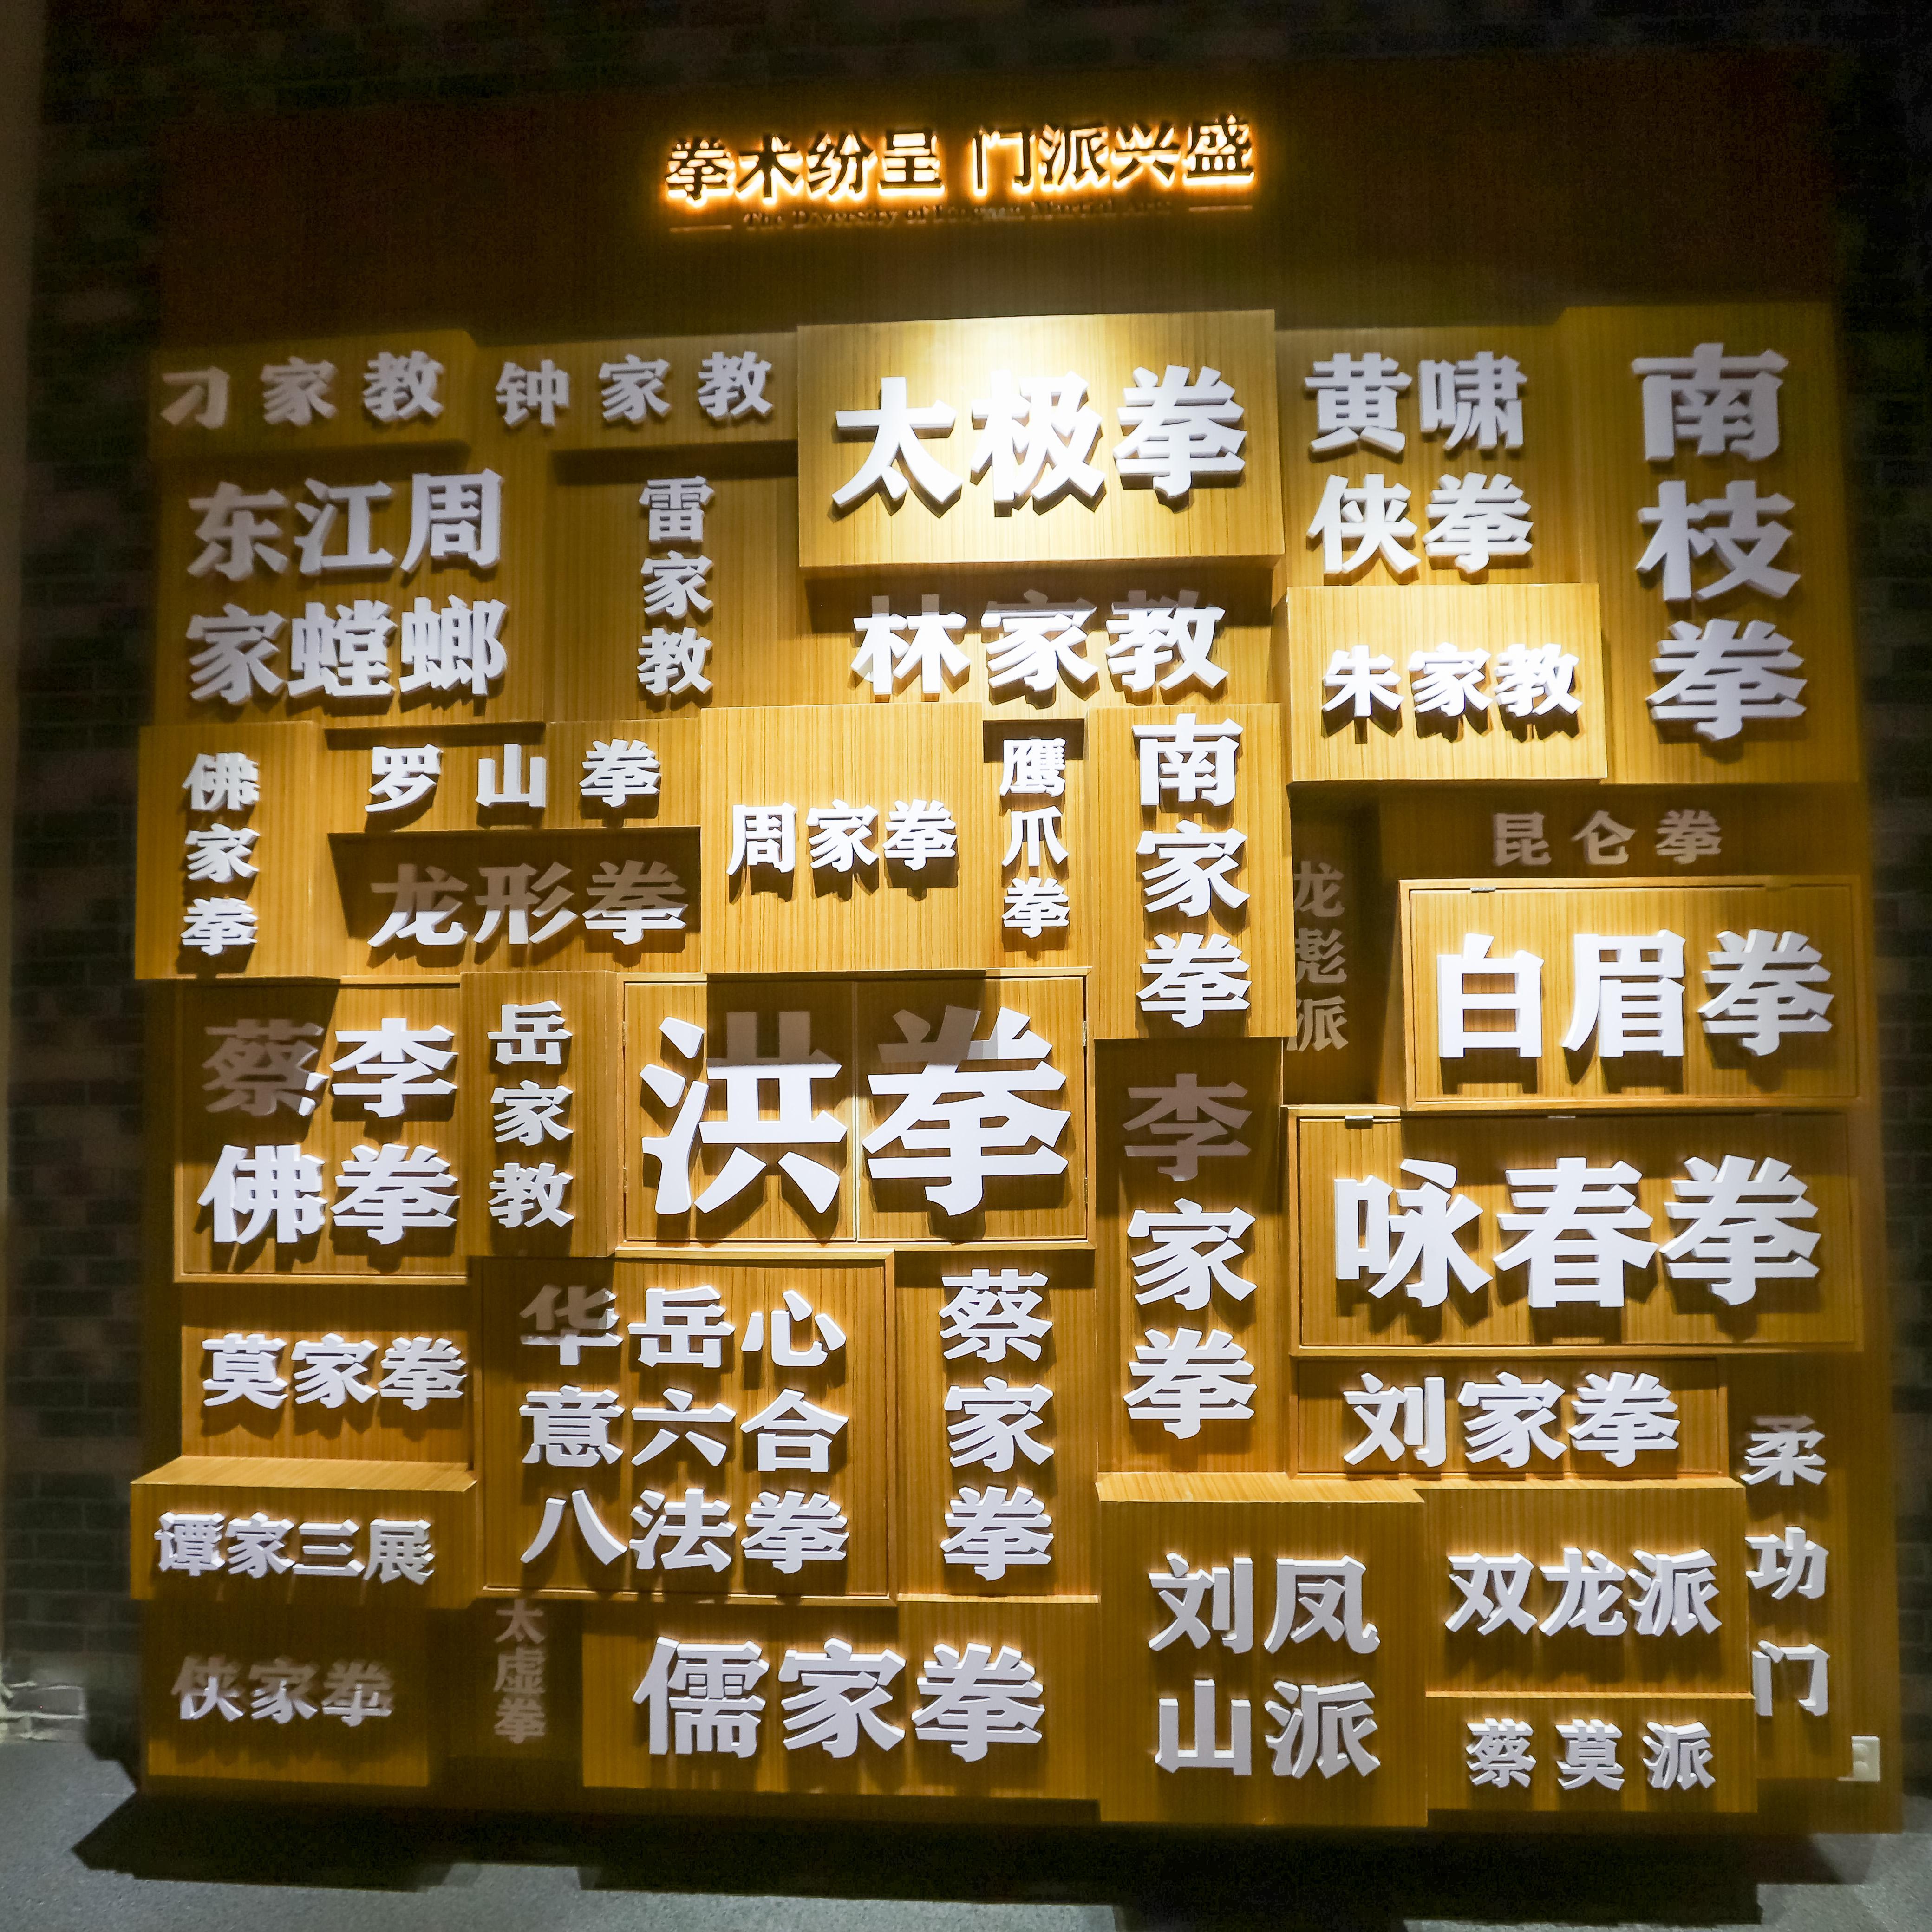 拳术纷呈 门派兴盛
The Diversity of Lingnan Martial Arts
刁家教
钟家教
太极拳
黄啸
侠拳
南枝拳
东江周
家螳螂
雷家教
林家教
朱家教
佛家拳
罗山拳
龙形拳
周家拳
鹰爪拳
南家拳
龙彪派
昆仑拳
白眉拳
蔡李
佛拳
岳家教
洪拳
李家拳
咏春拳
莫家拳
华岳心
意六合
八法拳
蔡家拳
刘家拳
柔功门
谭家三展
侠家拳
太虚拳
儒家拳
刘凤
山派
双龙派
蔡莫派